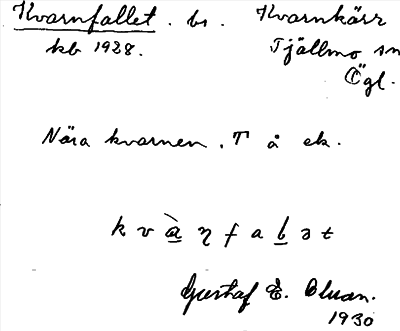 Kvarnfallet. bs. Kvarnkärr
kb 1928. Tjällmo sn
Ögl.
Nära kvarnen. T å ek.
k v à̱ ƞ f a ḻ ə t
Gustaf E. Cluan.
1930